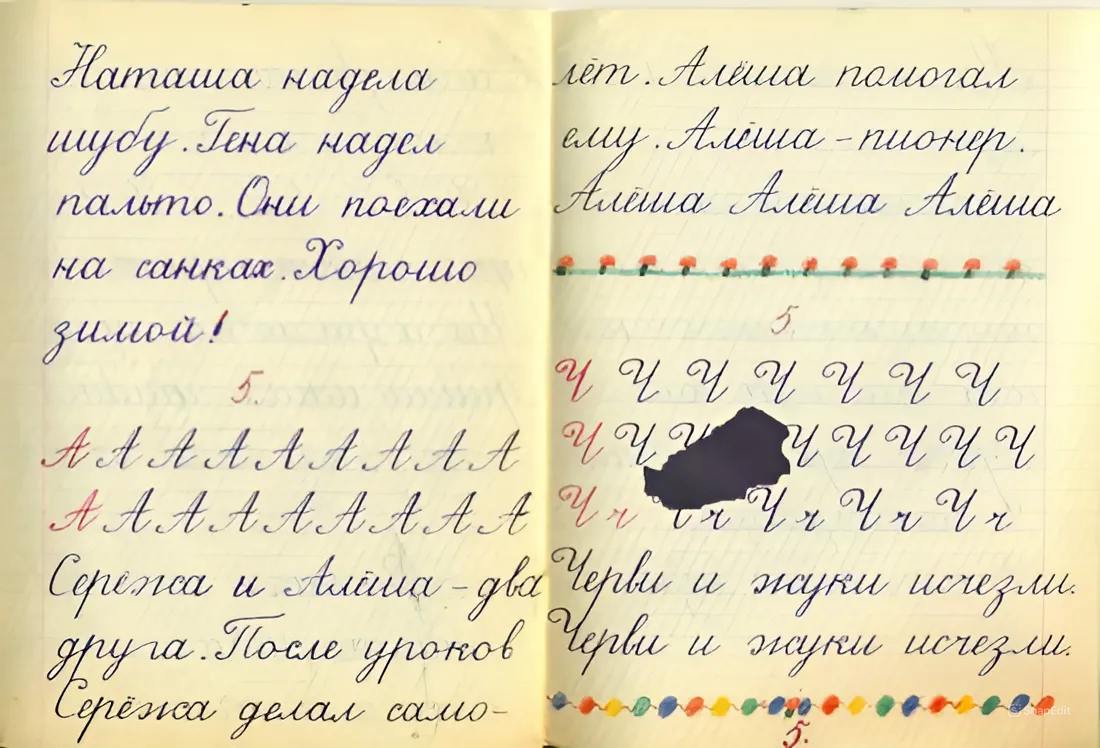 Наташа надела
шубу. Гена надел
пальто. Они поехали
на санках. Хорошо
зимой!
5.
А А А А А А А А А
А А А А А А А А А
Серёжа и Алёша – два
друга. После уроков
Серёжа делал само-
лёт. Алёша помогал
ему. Алёша – пионер.
Алёша Алёша Алёша
5.
Ч Ч Ч Ч Ч Ч Ч
Ч Ч Ч Ч Ч Ч Ч Ч
Ч ч ч Ч ч Ч ч Ч ч
Черви и жуки исчезли.
Черви и жуки исчезли.
5.
SnapEdit